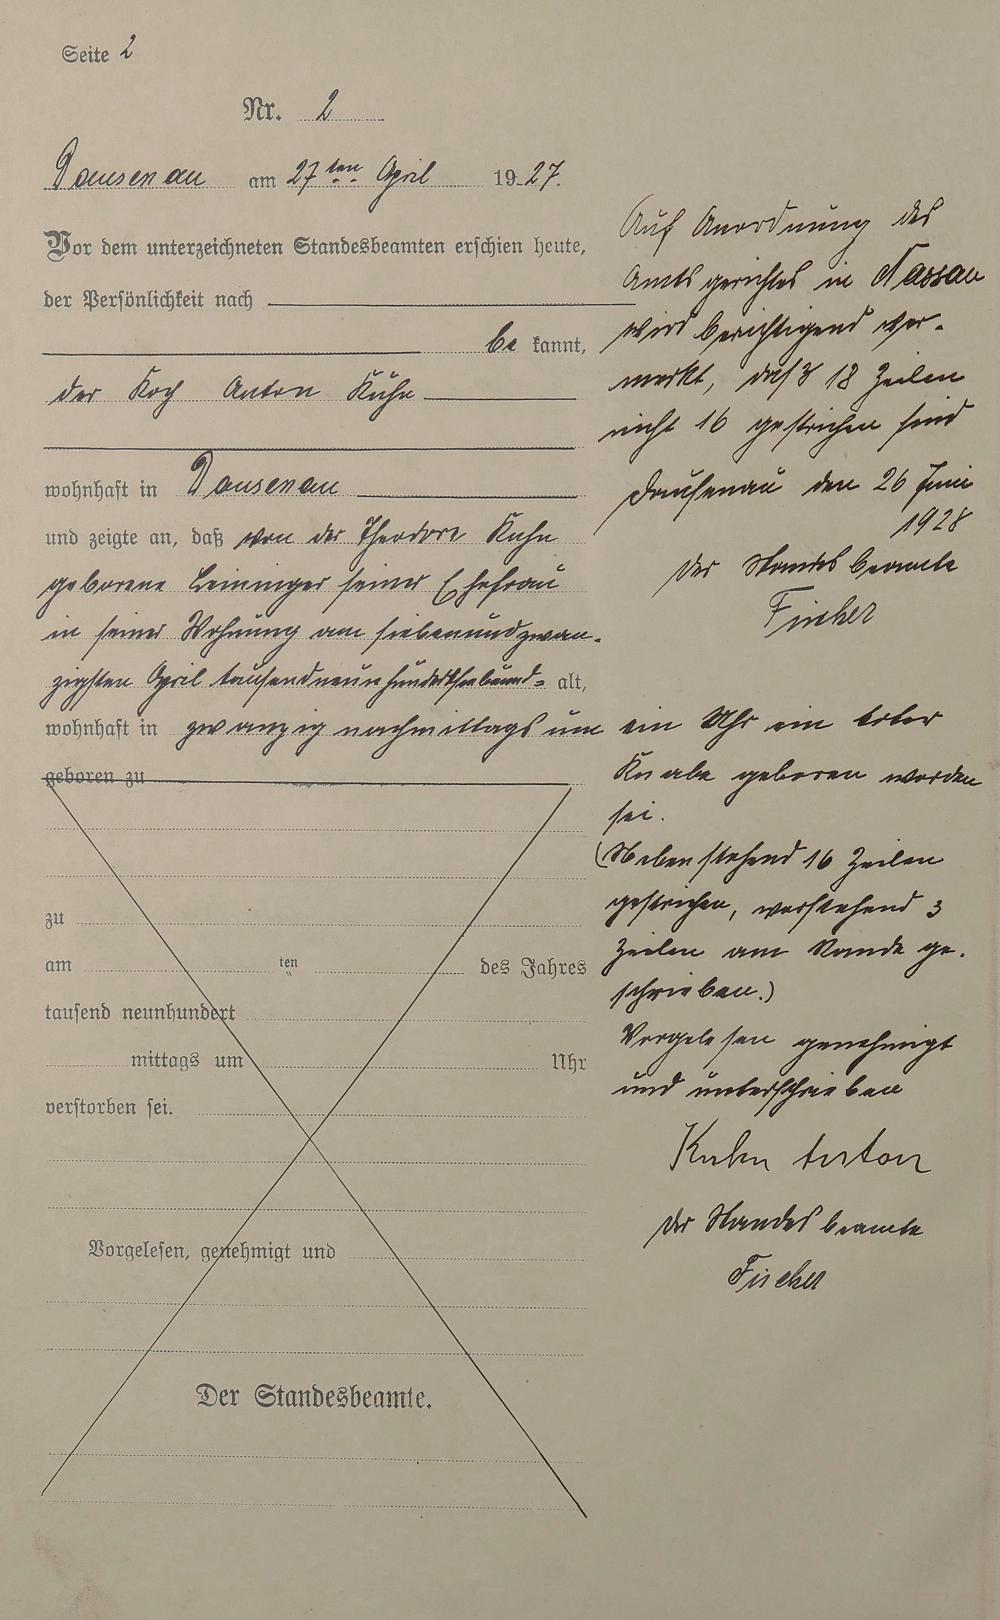 Seite 2
Nr. 2
Dausenau am 27ten April 1927.
Vor dem unterzeichneten Standesbeamten erschien heute,
der Persönlichkeit nach
be kannt,
der Koch Anton Kuhn
wohnhaft in Dausenau
und zeigte an, daß von der Theodore Kuhn
geborene Leininger seiner Ehefrau
in seiner Wohnung am siebenundzwan-
zigsten April tausendneunhundertsiebund- alt,
wohnhaft in zwanzig nachmittags um ein Uhr ein toter
geboren zu
Knabe geboren worden
sei.
(Nebenstehend 16 Zeilen
gestrichen, vorstehend 3
Zeilen am Rande ge-
schrieben.)
Vorgelesen genehmigt
und unterschrieben
Kuhn Anton
Der Standesbeamte
Fischer
zu
am ten des Jahres
tausend neunhundert
mittags um Uhr
verstorben sei.
Vorgelesen, genehmigt und
Der Standesbeamte.
Auf Anordnung des
Amtsgerichtes in Nassau
wird berichtigend ver-
merkt, daß 18 Zeilen
nicht 16 gestrichen sind
Dausenau den 26 Juni
1928
Der Standesbeamte
Fischer